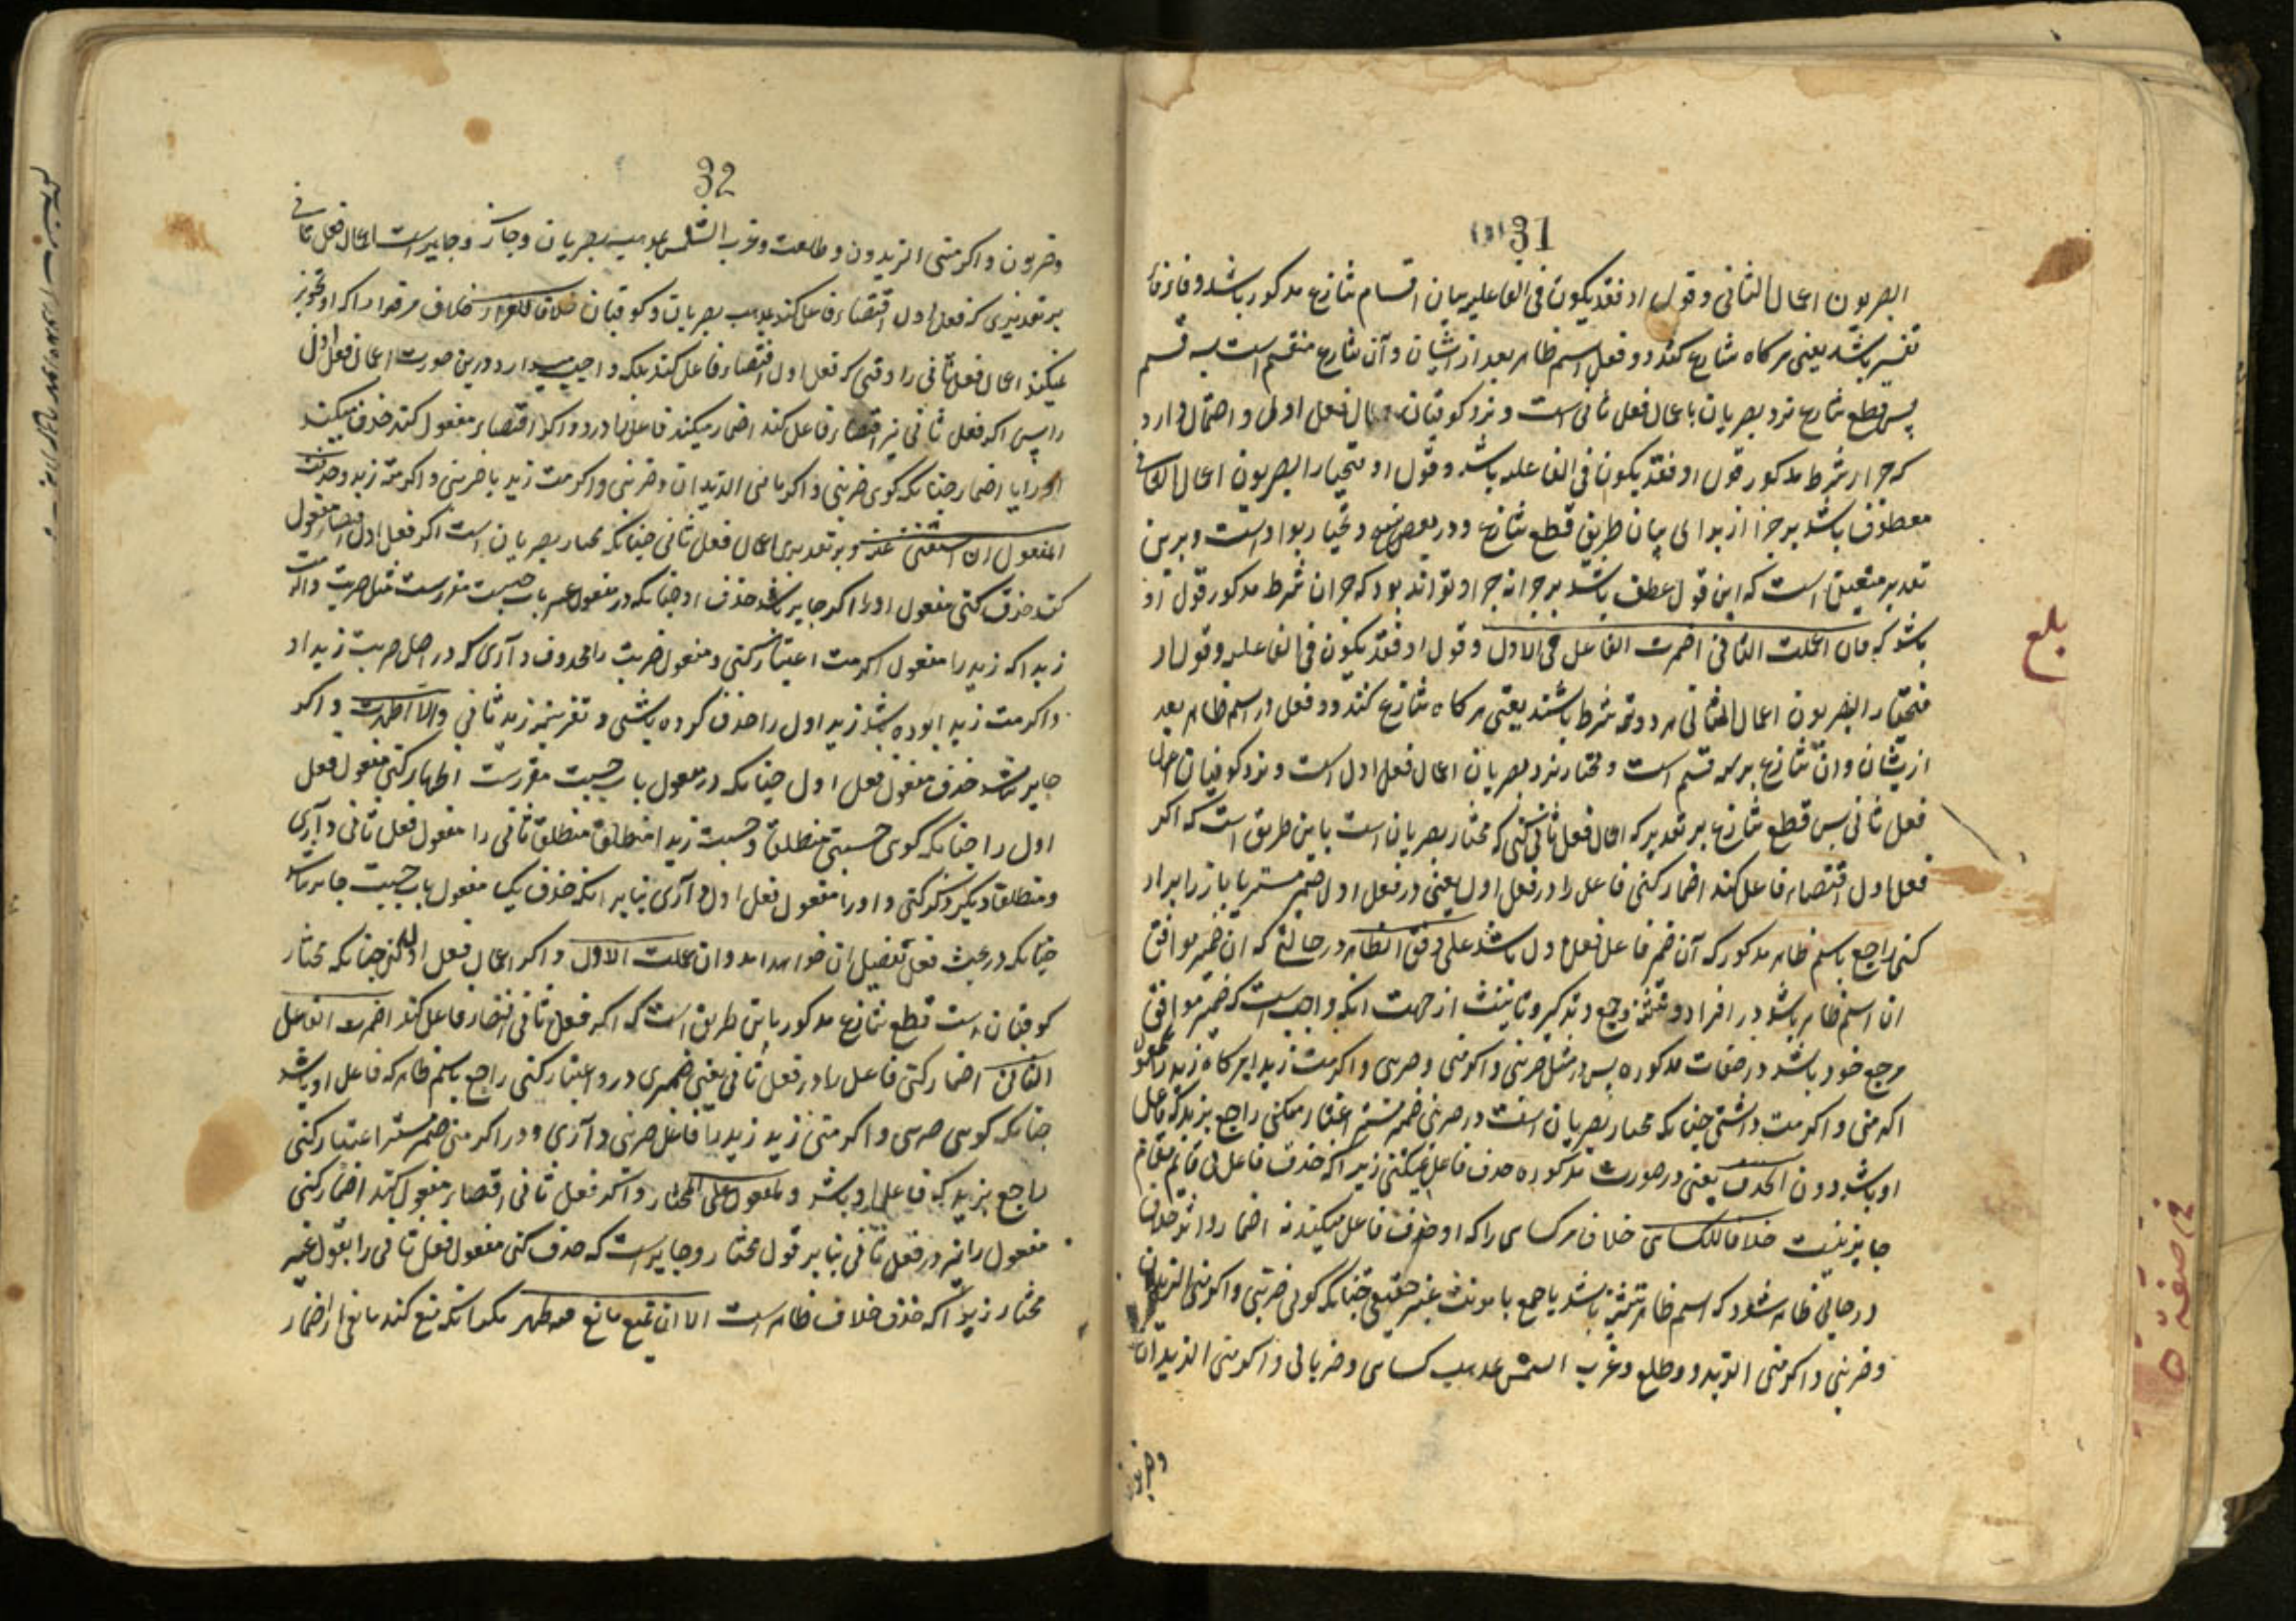 31
البصریون اعمال الثانی و قول او فقد یکون فی الفاعلیه بیان اقسام تنازع مذکور باشد و فا برای
تفسیر باشد یعنی هرگاه تنازع کند دو فعل اسم ظاهر بعد از ایشان و آن تنازع منقسم است بسه قسم
پس قطع تنازع نزد بصریان باعمال فعل ثانی است و نزد کوفیان اعمال فعل اول و احتمال دارد
که جزاء شرط مذکور قول او فقد یکون فی الفاعلیه باشد و قول او فیختار البصریون اعمال الثانی
معطوف باشد بر جزا از برای بیان طریق قطع تنازع و در بعض نسخ و یختار بواو است و برین
تقدیر متعین است که این قول عطف باشد بر جزا نه جزا و تواند بود که جزای شرط مذکور قول او
باشد که فان اعملت الثانی اضمرت الفاعل فی الاول و قول او فقد یکون فی الفاعلیه و قول او
فیختار البصریون اعمال الثانی هر دو تتمه شرط باشند یعنی هرگاه تنازع کنند دو فعل در اسم ظاهر بعد
از یشان و آن تنازع بر سه قسم است و مختار نزد بصریان اعمال فعل اول است و نزد کوفیان اعمال
فعل ثانی پس قطع تنازع بر تقدیر که اعمال فعل ثانی کنی که مختار بصریان است باین طریق است که اگر
فعل اول اقتضاء فاعل کند اضمار کنی فاعل را در فعل اول یعنی در فعل اول ضمیر مستتر یا بارز ایراد
کنی راجع باسم ظاهر مذکور که آن ضمیر فاعل فعل اول باشد علی وفق الظاهر در حالتی که ان ضمیر موافق
ان اسم ظاهر باشد در افراد و تثنیه و جمع و تذکیر و تانیث از جهت انکه واجب است که ضمیر موافق
مرجع خود باشد در صفات مذکوره پس در مثل ضربنی و اکرمنی و ضربنی و اکرمت زیدا هرگاه زید را معمول
اکرمنی و اکرمت داشتی چنانکه مختار بصریان است در ضربنی ضمیر مستتر اعتبار میکنی راجع بزید که فاعل
او باشد دون الحذف یعنی در صورت مذکوره حذف فاعل نمیکنی زیرا که حذف فاعل بی قائم مقام
جایز نیست خلافا للکسائی خلاف مر کسائی را که او حذف فاعل میکند نه اضمار و اثر خلاف
در جائی ظاهر شود که اسم ظاهر تثنیه باشد یا جمع یا مونث غیر حقیقی چنانکه گوئی ضربنی و اکرمنی الزیدان
و ضربنی و اکرمنی الزیدون و طلع و غرب الشمس بمذهب کسائی و ضربانی و اکرمنی الزیدان
و ضربونی
بلغ
32
و ضربونی و اکرمنی الزیدون و طلعت و غرب الشمس بمذهب بصریان و جاز و جایز است اعمال فعل ثانی
بر تقدیری که فعل اول اقتضاء فاعل کند بمذهب بصریان و کوفیان خلافا للفراء خلاف مر فراء را که او تجویز
نمیکند اعمال فعل ثانی را وقتی که فعل اول اقتضاء فاعل کند بلکه واجب میدارد درین صورت اعمال فعل اول
را پس اگر فعل ثانی نیز اقتضاء فاعل کند اضمار میکنند فاعل را درو و اگر اقتضاء مفعول کند حذف میکند
او را یا اضمار چنانکه گوی ضربنی و اکرمانی الزیدان و ضربنی و اکرمت زید یا ضربنی و اکرمته زید و حذفت
المفعول ان استغنی عنه و بر تقدیری اعمال فعل ثانی چنانکه مختار بصریان است اگر فعل اول اقتضاء مفعول
کند حذف کنی مفعول او را اگر جایز باشد حذف او چنانکه در مفعول غیر باب حسبت مقرر است مثل ضربت و اکرمت
زیدا که زید را مفعول اکرمت اعتبار کنی و مفعول ضربت را محذوف داری که در اصل ضربت زیدا و
و اکرمت زیدا بوده باشد زید اول را حذف کرده باشی و تفسیر زید ثانی و الا اظهرت و اگر
جایز نباشد حذف مفعول فعل اول چنانکه در مفعول باب حسبت مقررست اظهار کنی مفعول فعل
اول را چنانکه گوی حسبنی منطلقا و حسبت زیدا منطلقا منطلقا ثانی را مفعول فعل ثانی داری
و منطلقا دیگر ذکر کنی و او را مفعول فعل اول داری بنابر انکه حذف یک مفعول باب حسبت جایز نباشد
چنانکه در بحث فعل تفصیل ان خواهد امد و ان عملت الاول و اگر اعمال فعل اول کنی چنانکه مختار
کوفیان است قطع تنازع مذکور باین طریق است که اگر فعل ثانی اقتضاء فاعل کند اضمرت الفاعل
الثانی اضمار کنی فاعل را در فعل ثانی یعنی ضمیری درو اعتبار کنی راجع باسم ظاهر که فاعل او باشد
چنانکه گوی ضربنی و اکرمنی زید زید را فاعل ضربنی داری و در اکرمنی ضمیر مستتر اعتبار کنی
راجع بزید که فاعل او باشد و المفعول علی المختار و اگر فعل ثانی اقتضاء مفعول کند اضمار کنی
مفعول را نیز در فعل ثانی بنابر قول مختار و جایز است که حذف کنی مفعول فعل ثانی را بقول غیر
مختار زیرا که حذف خلاف ظاهر است الا ان یمنع مانع فتظهر مگر انکه منع کند مانعی از اضمار